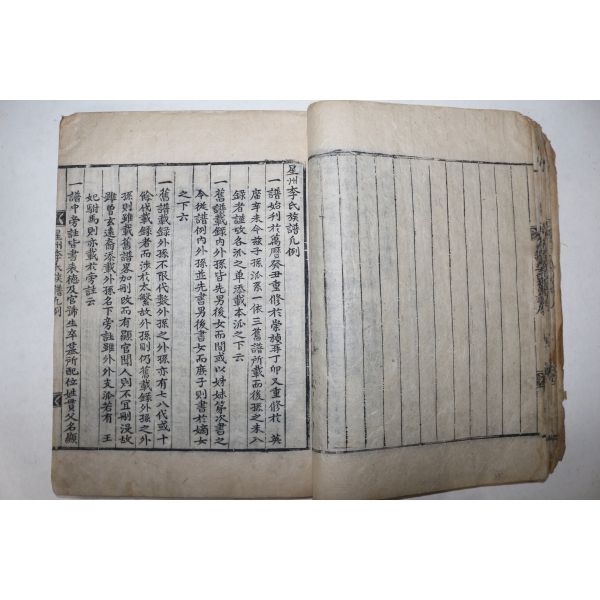 星州李氏族譜凡例
一譜始刊於萬曆癸丑重修於崇禎再丁卯又重修於 英
廟辛未今茲子孫派系一依三舊譜所載而後孫之未入
錄者謹攷各派之單添載本派之下云
一舊譜載錄內外孫皆先男後女而間或以姊妹第次書之
今從譜例內外孫並先書男後書女而庶子則書於嫡女
之下六
一舊譜載錄外孫不限代數外孫之外孫亦有七八代或十
餘代載錄者而涉於太繁故外孫則仍舊載錄外孫之外
孫則雖載舊譜畧加刪改而有顯官聞人則不宜刪沒故
雖曾玄遠裔添載外孫名下旁註雖外外支派若有 王
妃駙馬則亦載於旁註云
一譜中旁註皆書表德及官啣生卒墓所配位姓貫父名顯
星州李氏族譜凡例